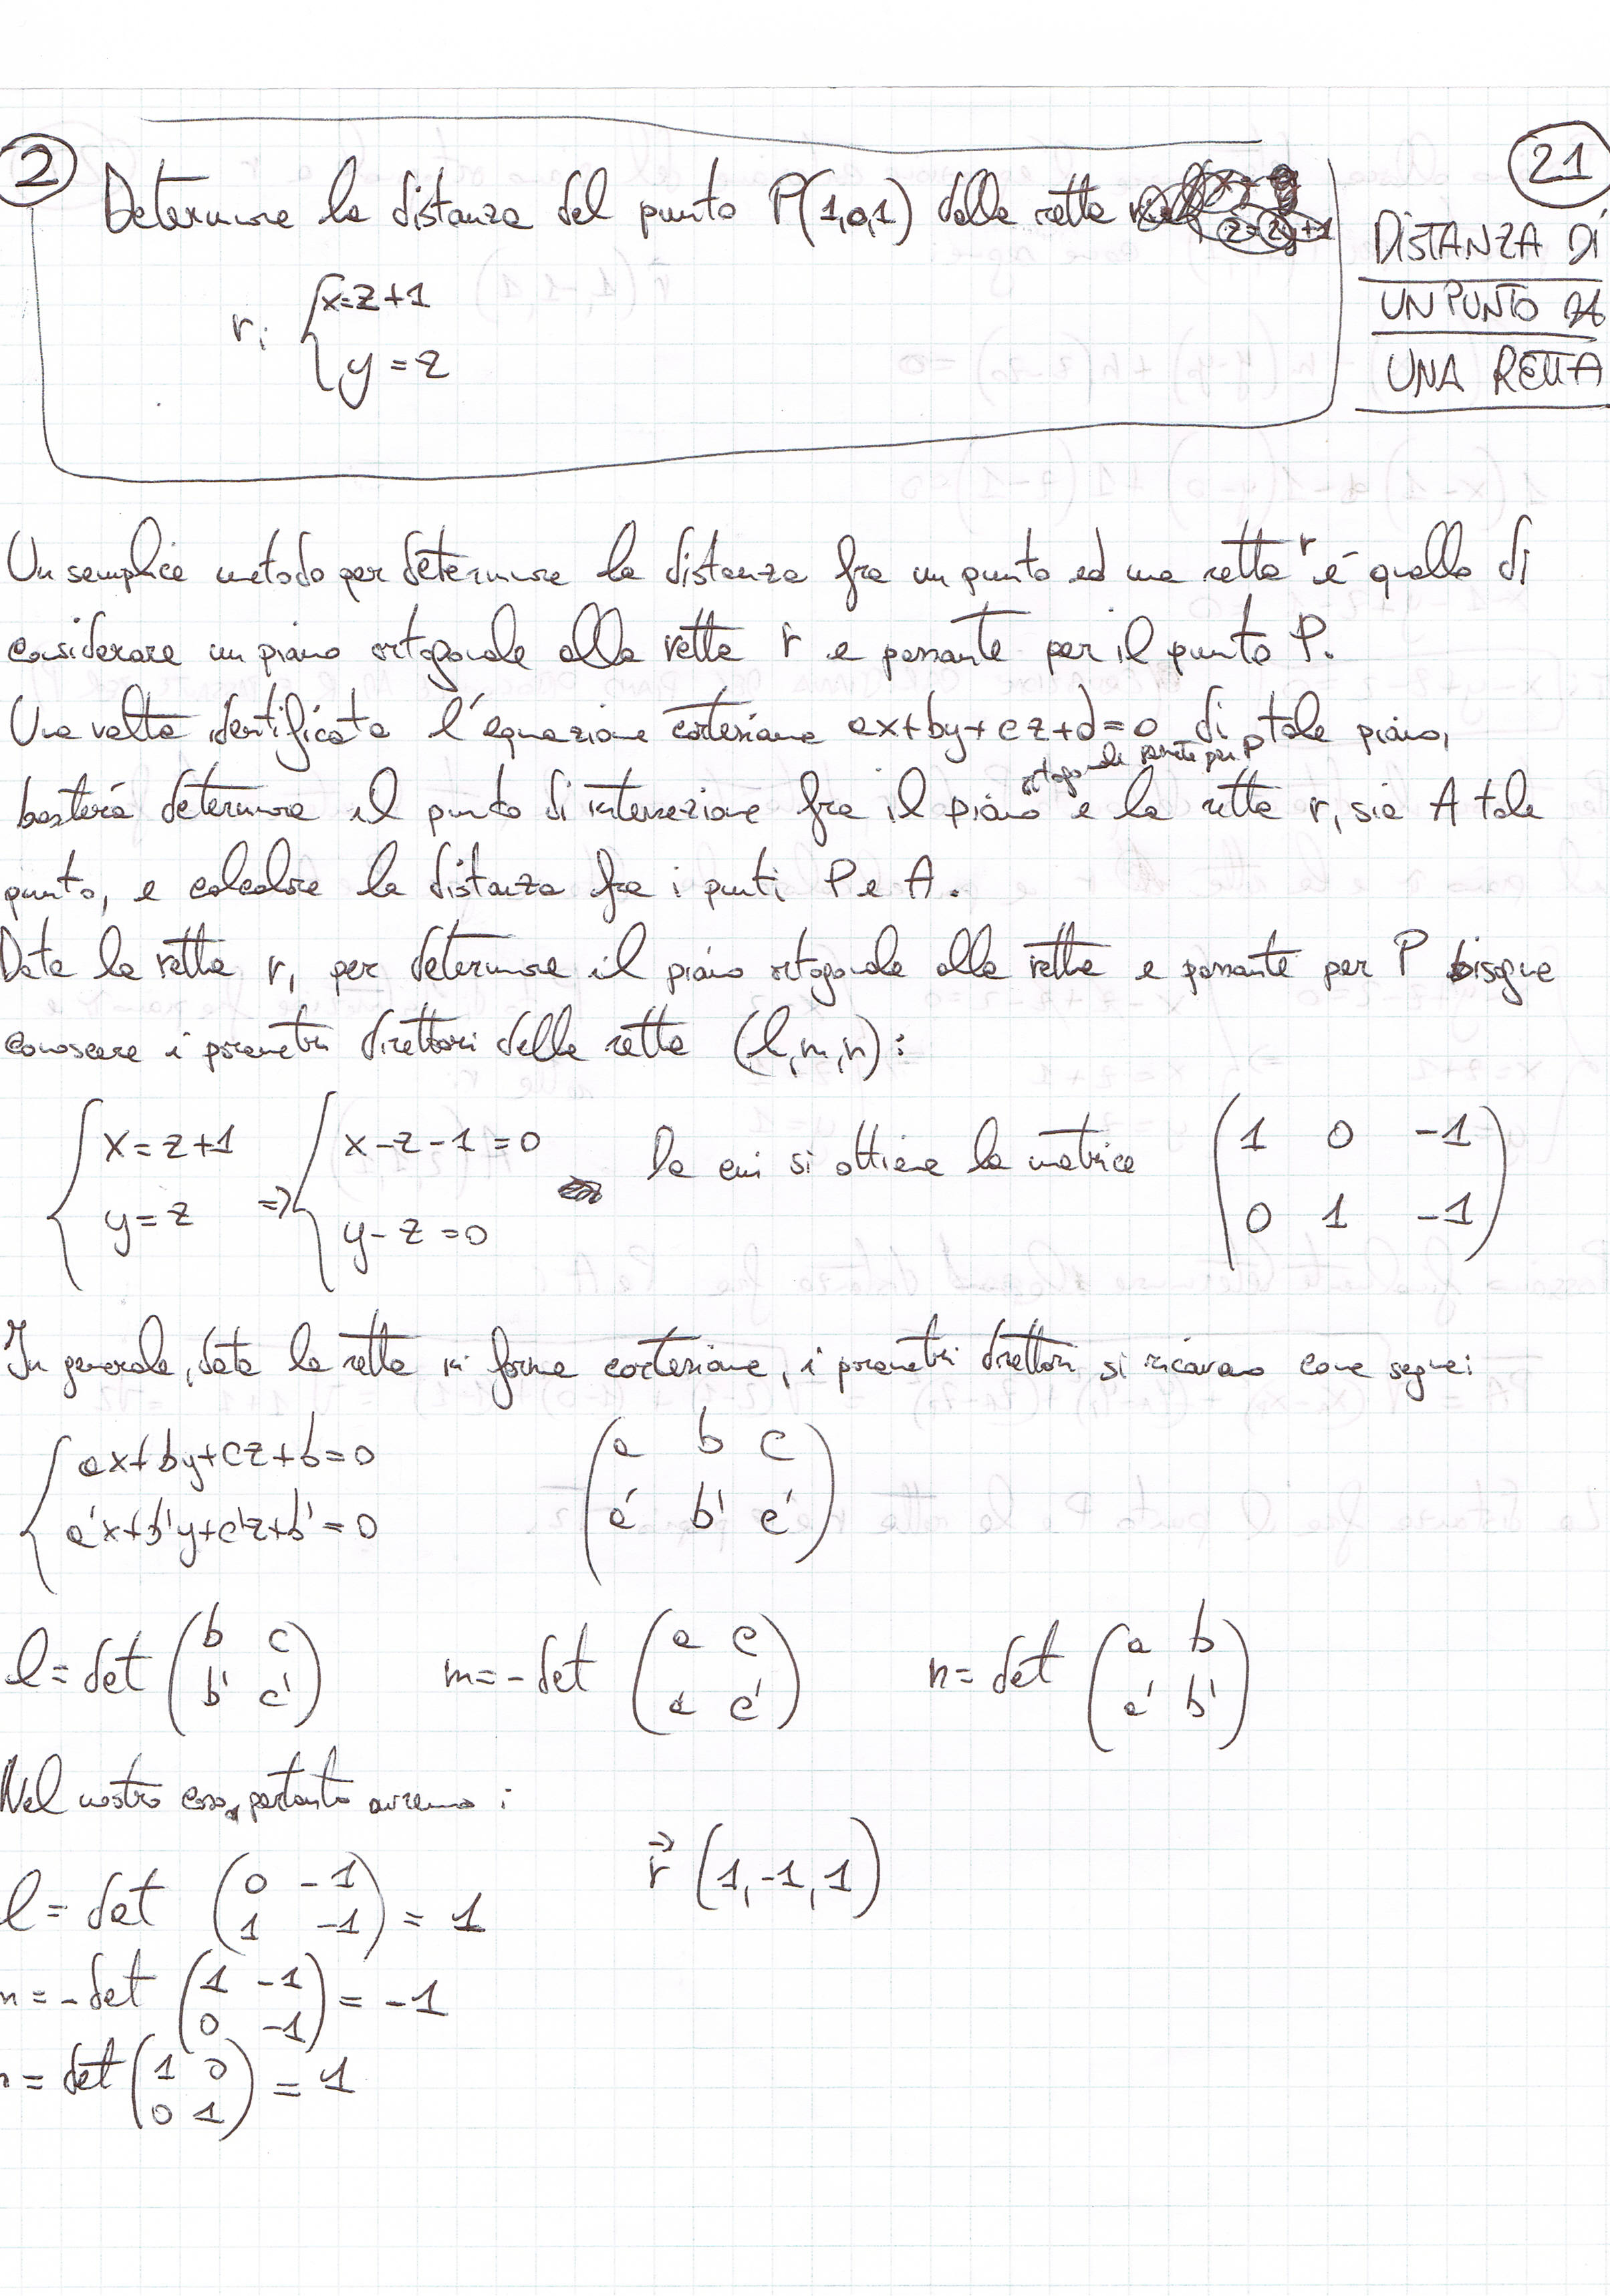 2
21
Determinare la distanza del punto P(1,0,1) dalla retta
DISTANZA DI
UN PUNTO DA
UNA RETTA
r: { x=z+1
y=z
Un semplice metodo per determinare la distanza fra un punto ed una retta r è quello di
considerare un piano ortogonale alla retta r e passante per il punto P.
Una volta identificata l'equazione cartesiana ax+by+cz+d=0 di tale piano,
ortogonale passante per P
basterà determinare il punto di intersezione fra il piano e la retta r, sia A tale
punto, e calcolare la distanza fra i punti P e A.
Data la retta r, per determinare il piano ortogonale alla retta e passante per P bisogna
conoscere i parametri direttori della retta (l,m,n):
{ x=z+1 => { x-z-1=0 da cui si ottiene la matrice ( 1 0 -1
y=z y-z=0 0 1 -1 )
In generale, data la retta in forma cartesiana, i parametri direttori si ricavano come segue:
{ ax+by+cz+b=0 ( a b c
a'x+b'y+c'z+b'=0 a' b' c' )
l=det ( b c m=-det ( a c n=det ( a b
b' c' ) a' c' ) a' b' )
Nel nostro caso, pertanto avremo:
l= det ( 0 -1 r⃗ (1,-1,1)
1 -1 ) = 1
=-det ( 1 -1
0 -1 ) = -1
= det ( 1 0
0 1 ) = 1